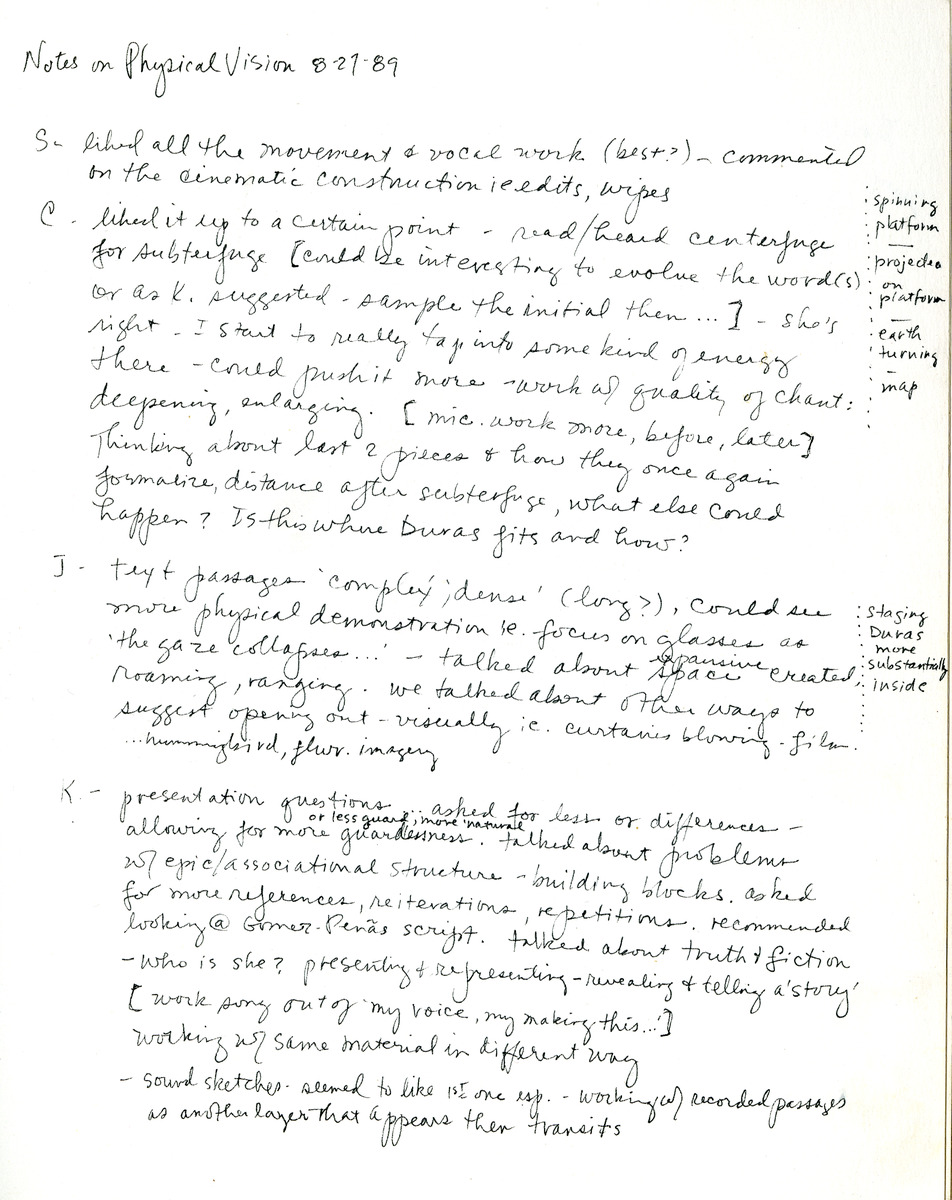 Notes on Physical Vision 8-27-89
S- liked all the movement & vocal work (best?) - commented
on the cinematic construction ie edits, wipes
C - liked it up to a certain point - read/heard centerfuge
for subterfuge [could be interesting to evolve the word(s)
or as K. suggested - sample the initial then ...] - she's
right - I start to really tap into some kind of energy
there - could push it more - work w/ quality of chant:
deepening, enlarging. [mic. work more, before, later]
Thinking about last 2 pieces & how they once again
formalize, distance after subterfuge, what else could
happen? Is this where Duras fits and how?
: spinning
platform
—
projected
on
platform
—
earth
turning
—
map
J - text passages 'complex', 'dense' (long?), could see
more physical demonstration ie. focus on glasses as
'the gaze collapses...' - talked about expansive space created,
roaming, ranging. we talked about other ways to
suggest opening out - visually ie. curtains blowing - film.
...hummingbird, flwr. imagery
: staging
: Duras
more
substantially
inside
K. - presentation questions... asked for less or differences -
or less guard, more 'natural'
allowing for more guardedness. talked about problems
w/ epic/associational structure - building blocks. asked
for more references, reiterations, repetitions. recommended
looking @ Gomez-Peñas script. talked about truth & fiction
- who is she? presenting & representing - revealing & telling a 'story'
[work song out of 'my voice, my making this...']
working w/ same material in different way
- sound sketches - seemed to like 1st one esp. - working w/ recorded passages
as another layer that appears then transits